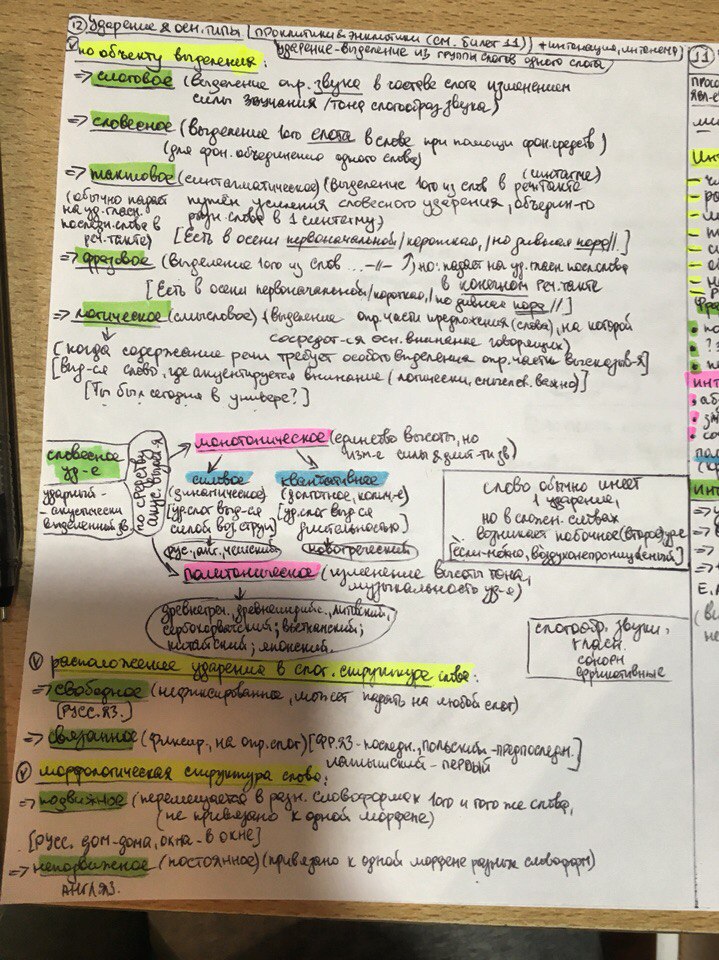 12) Ударение и осн. типы [проклитики и энклитики (см. билет 11)] + интонация, интонемы
ударение - выделение из группы слогов одного слога
V по объекту выделения:
=> слоговое (выделение опр. звука в составе слога изменением
силы звучания / тона слогообраз. звука)
=> словесное (выделение 1ого слога в слове при помощи фон. средств)
(для фон. объединения одного слова)
=> тактовое (синтагматическое) (выделение 1ого из слов в реч. такте
(синтагме)
(обычно падает на уд. гласн. последн. слова в реч. такте)
путём усиления словесного ударения, объедин-го
разн. слова в 1 синтагму)
[Есть в осени первоначальной / короткая, / но дивная пора //.]
=> фразовое (выделение 1ого из слов ... -//- ↑) но: падает на уд. гласн. посл. слова
в конечном реч. такте
[Есть в осени первоначальной / короткая, / но дивная пора //]
=> логическое (смысловое) (выделение опр. части предложения (слова), на которой
сосредот-ся осн. внимание говорящих)
[когда содержание речи требует особого выделения опр. части высказыв-я]
[выд-ся слово, где акцентируется внимание (логически, смыслов. важно)]
[Ты был сегодня в универе?]
словесное уд-е
ударный - акустически выделенный зв.
по средству акус. выраж-я
монотоническое (единство высоты, но
изм-е силы и длит-ти зв)
силовое
(динамическое)
[уд. слог выд-ся
силой возд. струи]
рус., англ., чешский
квантитативное
(долготное, колич-е)
[уд. слог выд-ся
длительностью]
новогреческий
политоническое (изменение высоты тона,
музыкальность уд-я)
древнегреч., древнеиндийс., литовский,
сербохорватский; вьетнамский;
китайский; японский.
слово обычно имеет
1 ударение,
но в сложн. словах
возникает побочное (второе) уд-е
[если-можно, воздухонепроницаемый]
слогообр. звуки:
гласн.
сонорн
фрикативные
V расположение ударения в слог. структуре слова:
=> свободное (нефиксированное, может падать на любой слог)
[РУСС. ЯЗ.]
=> связанное (фиксир., на опр. слог) [ФР. ЯЗ - последн., польский - предпоследн.
латышский - первый]
V морфологическая структура слова:
=> подвижное (перемещается в разн. словоформах 1ого и того же слова,
(не привязано к одной морфеме)
[русс. дом - дома, окна - в окне]
=> неподвижное (постоянное) (привязано к одной морфеме разных словоформ)
АНГЛ. ЯЗ.
11